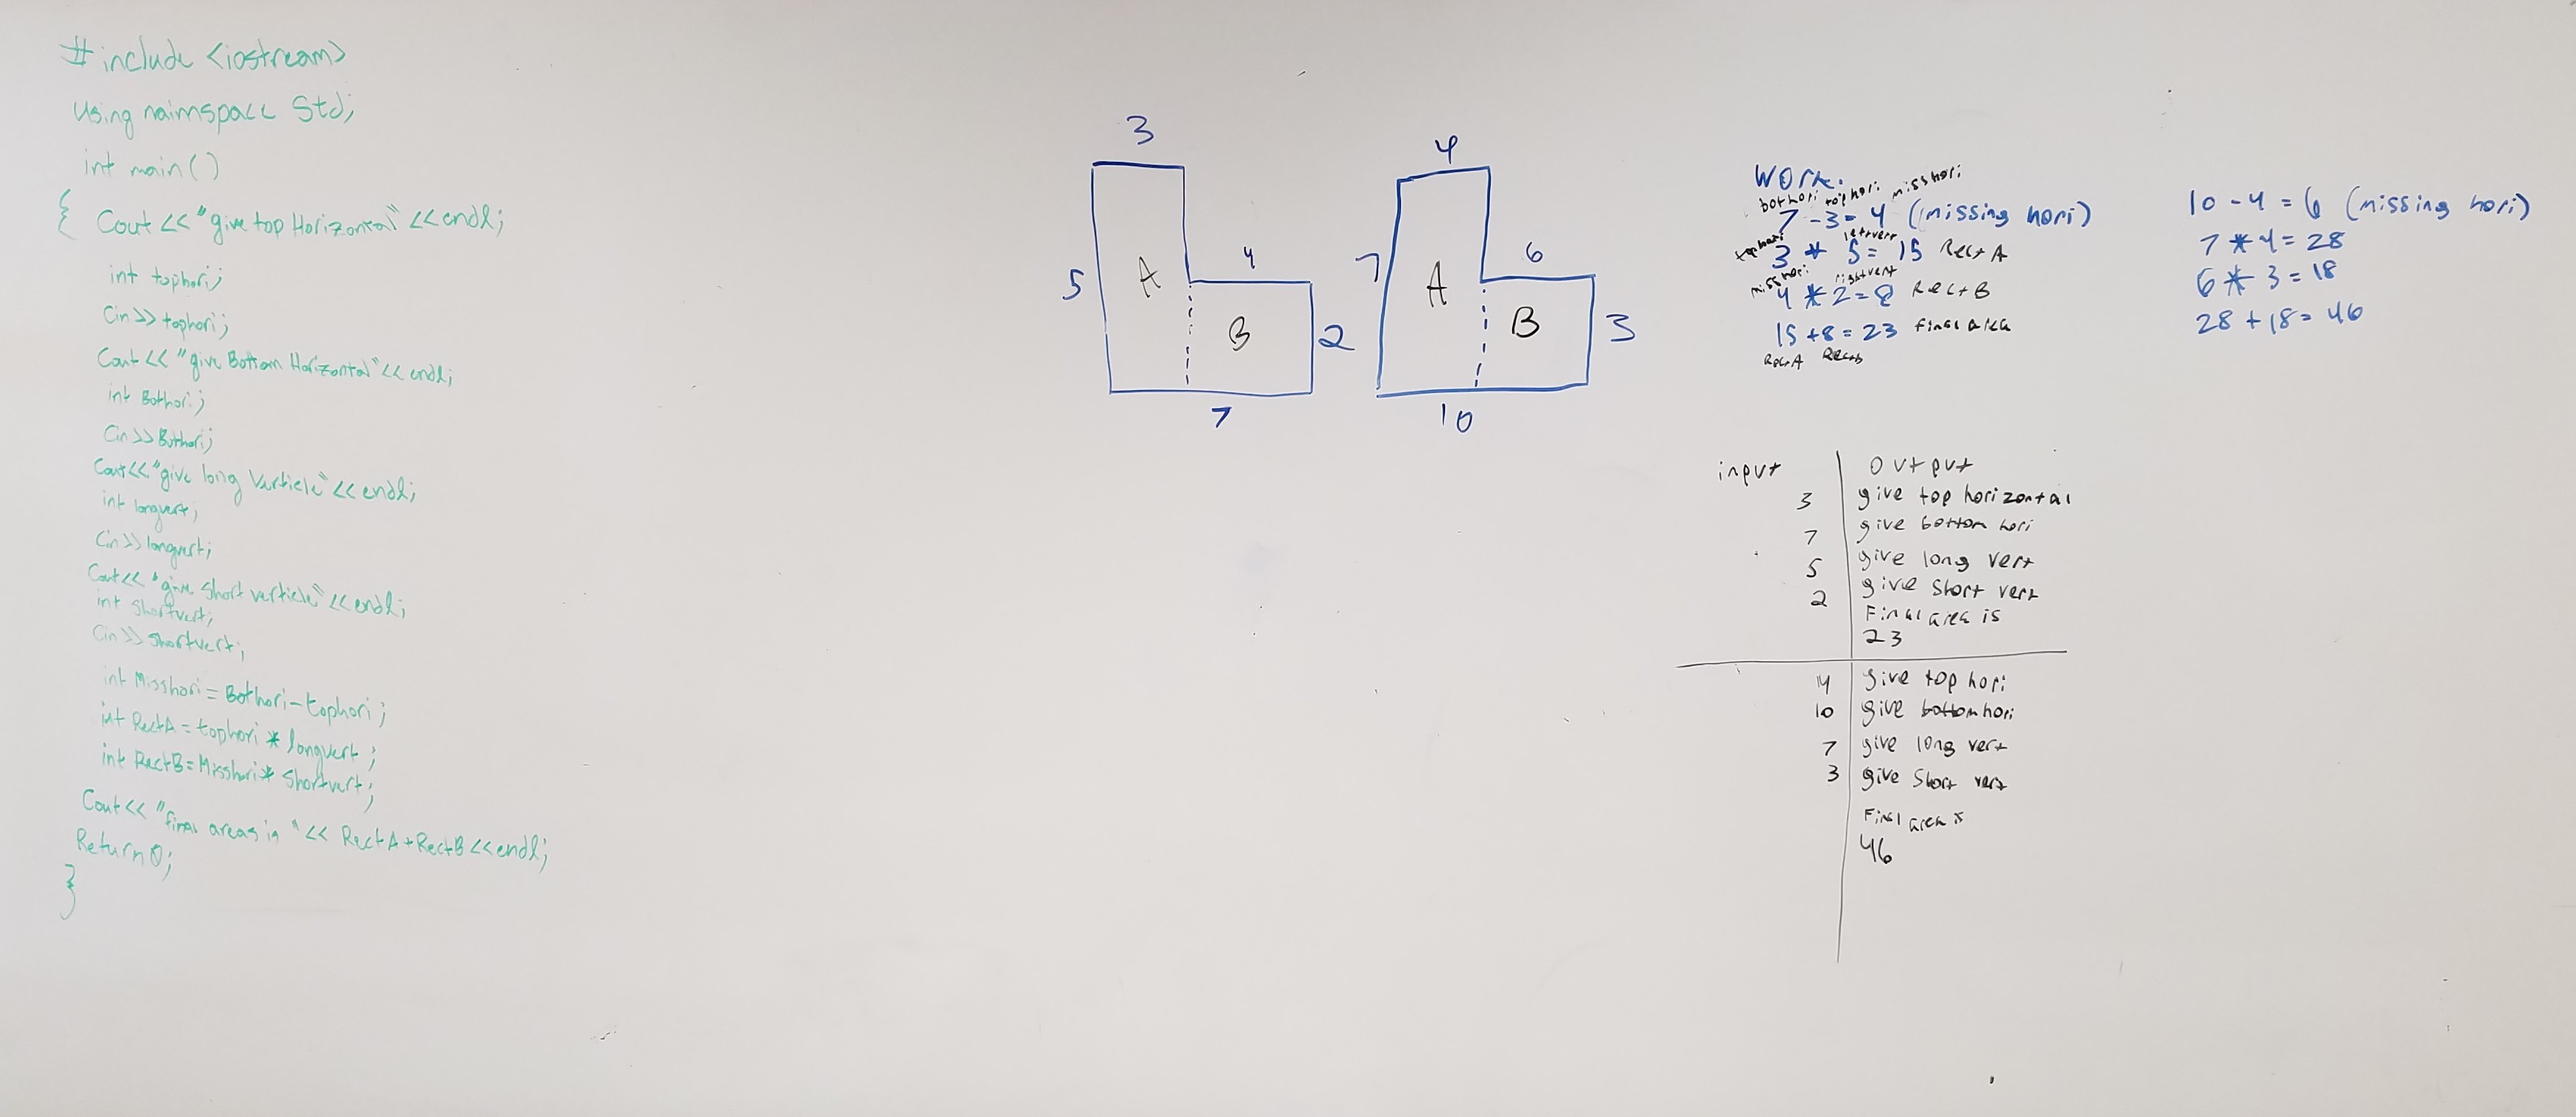 #include <iostream>
Using naimspace Std;
int main()
{ Cout << "give top Horizontal" << endl;
int tophori;
Cin >> tophori;
Cout << "give Bottom Horizontal" << endl;
int Bothori;
Cin >> Bothori;
Cout << "give long Verticle" << endl;
int longvert;
Cin >> longvert;
Cout << "give Short verticle" << endl;
int Shortvert;
Cin >> Shortvert;
int Misshori = Bothori - tophori;
int RectA = tophori * longvert;
int RectB = Misshori * Shortvert;
Cout << "final areas is" << RectA + RectB << endl;
Return 0;
}
3
5
A
4
B
2
7
4
7
A
6
B
3
10
Work:
bothori tophori misshori
7 - 3 = 4 (missing hori)
tophori leftvert
3 * 5 = 15 Rect A
misshori rightvert
4 * 2 = 8 Rect B
15 + 8 = 23 Final area
Rect A Rect b
10 - 4 = 6 (missing hori)
7 * 4 = 28
6 * 3 = 18
28 + 18 = 46
input output
3 give top horizontal
7 give bottom hori
5 give long vert
2 give short vert
Final area is
23
4 give top hori
10 give bottom hori
7 give long vert
3 give Short vert
Final area is
46